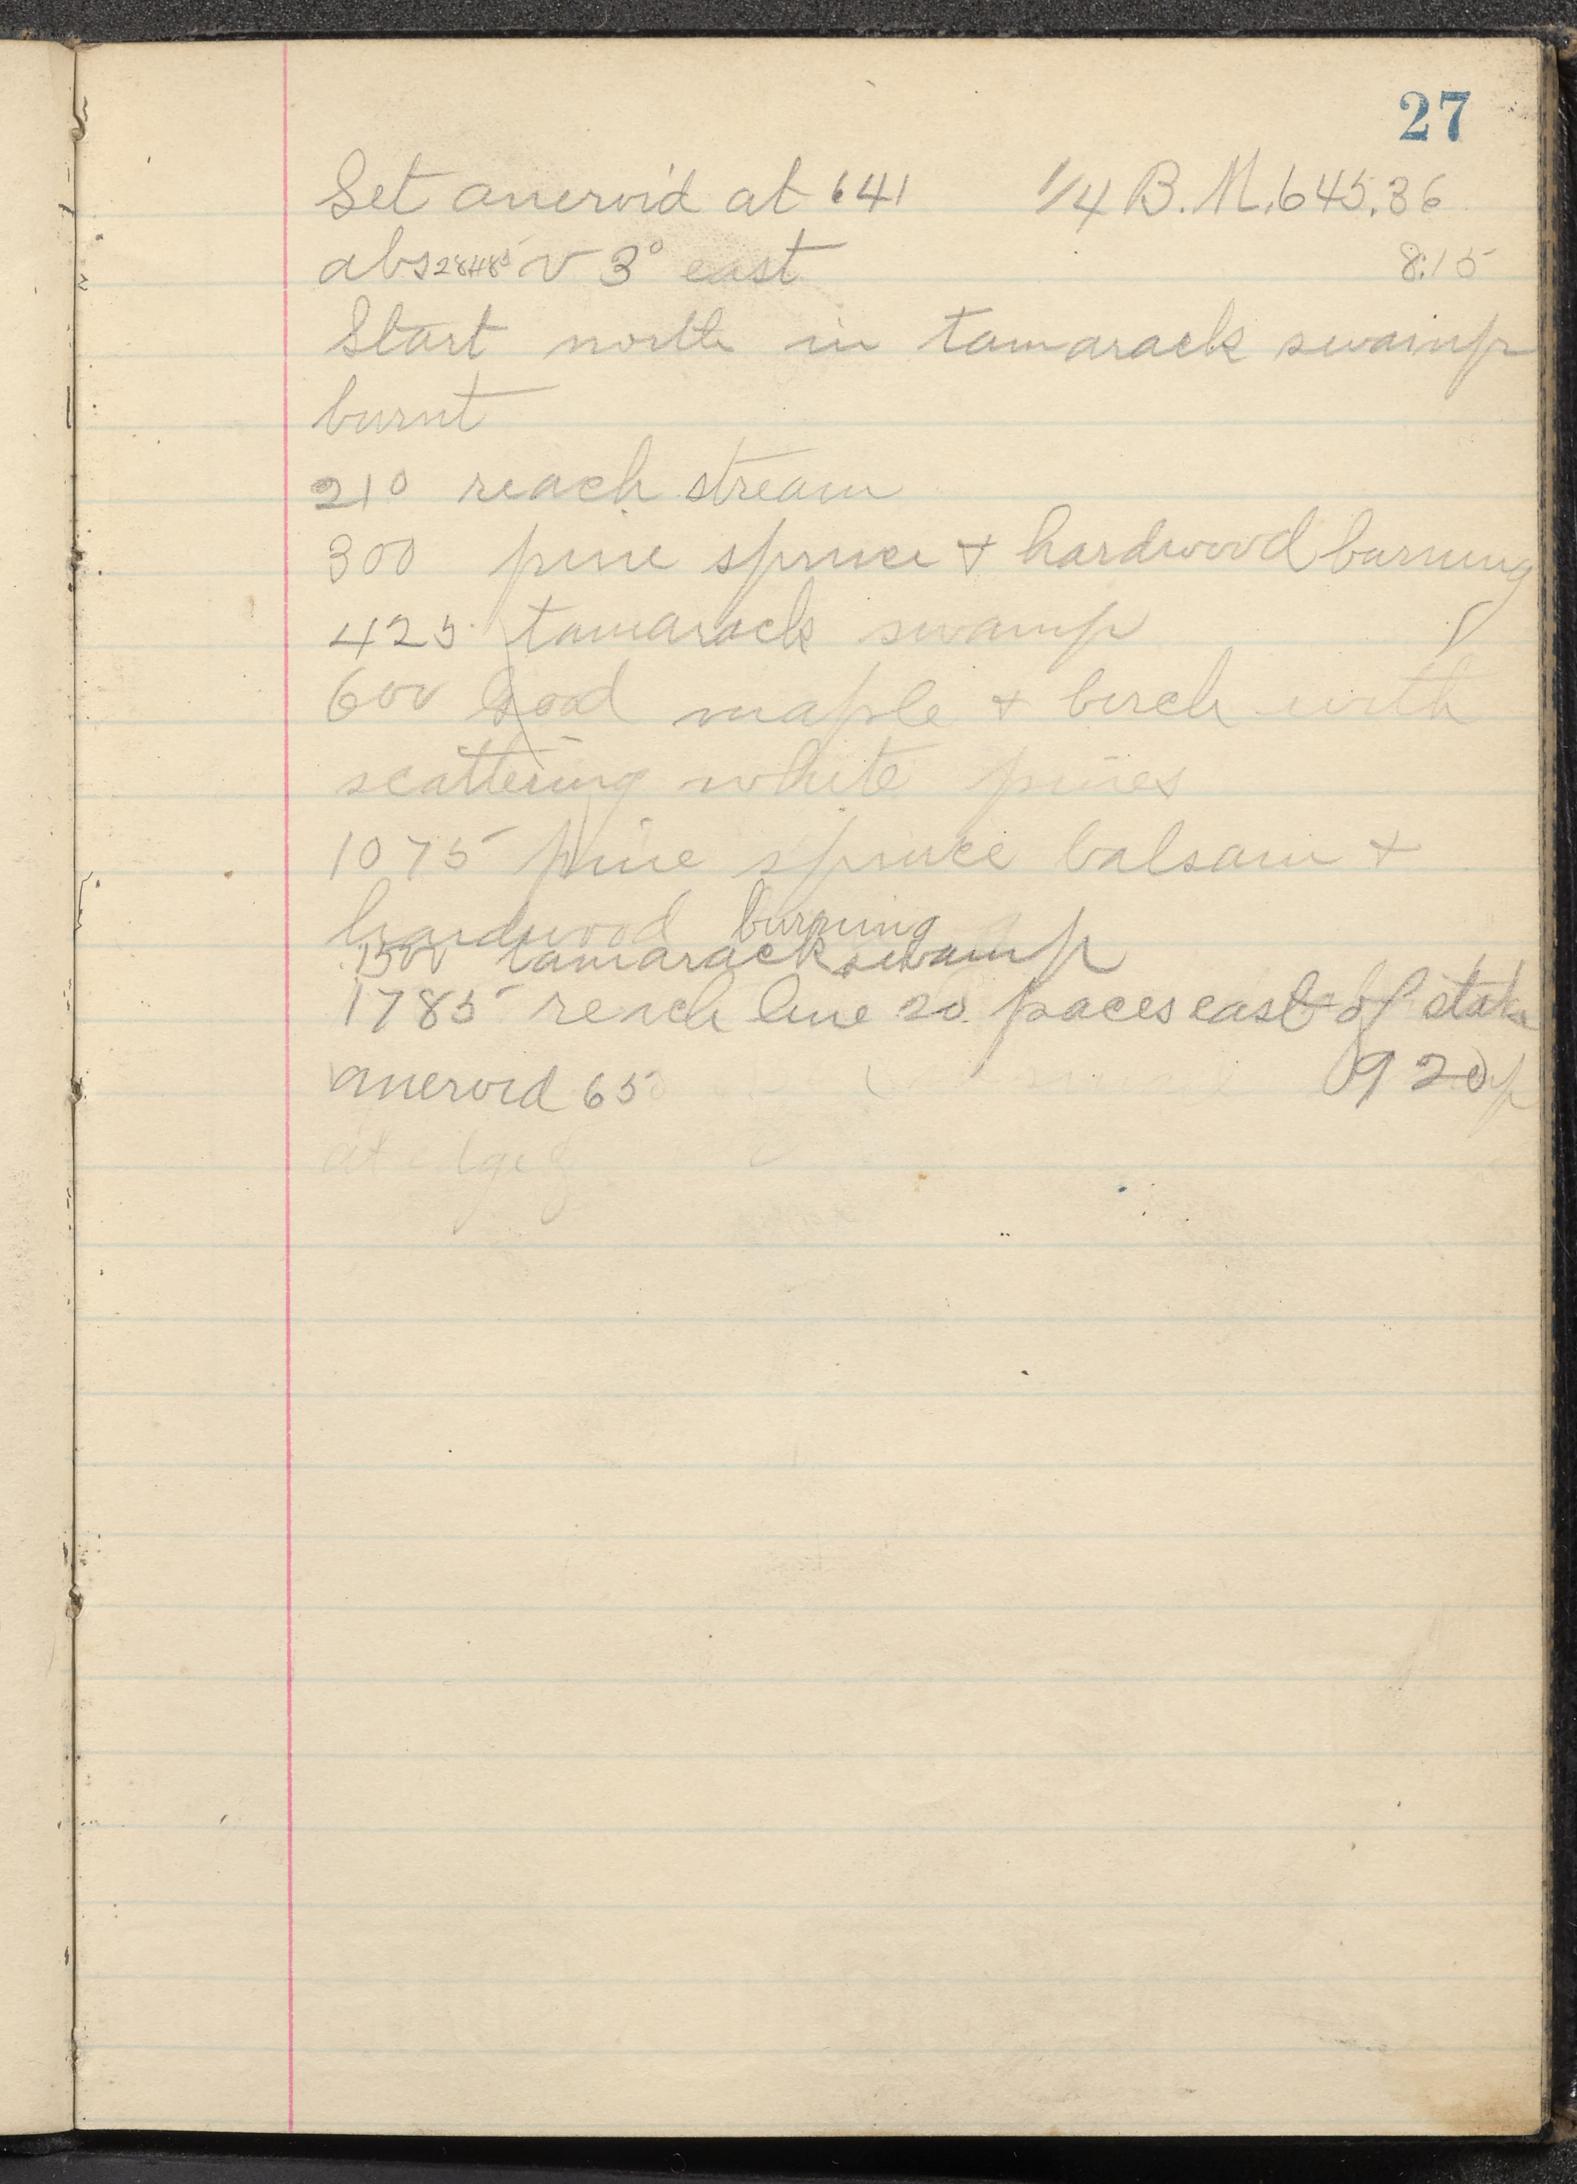 27
Set aneroid at 641 1/4 B.M. 645.36
abs 28485 v 3° east 8:15
Start north in tamarack swamp
burnt
210 reach stream
300 pine spruce + hardwood burning
425 tamarack swamp
600 Good maple + birch with
scattering white pines
1075 pine spruce balsam +
hardwood burning
1500 tamarack swamp
1785 reach line 20 paces east of stake
aneroid 650 920
at edge of